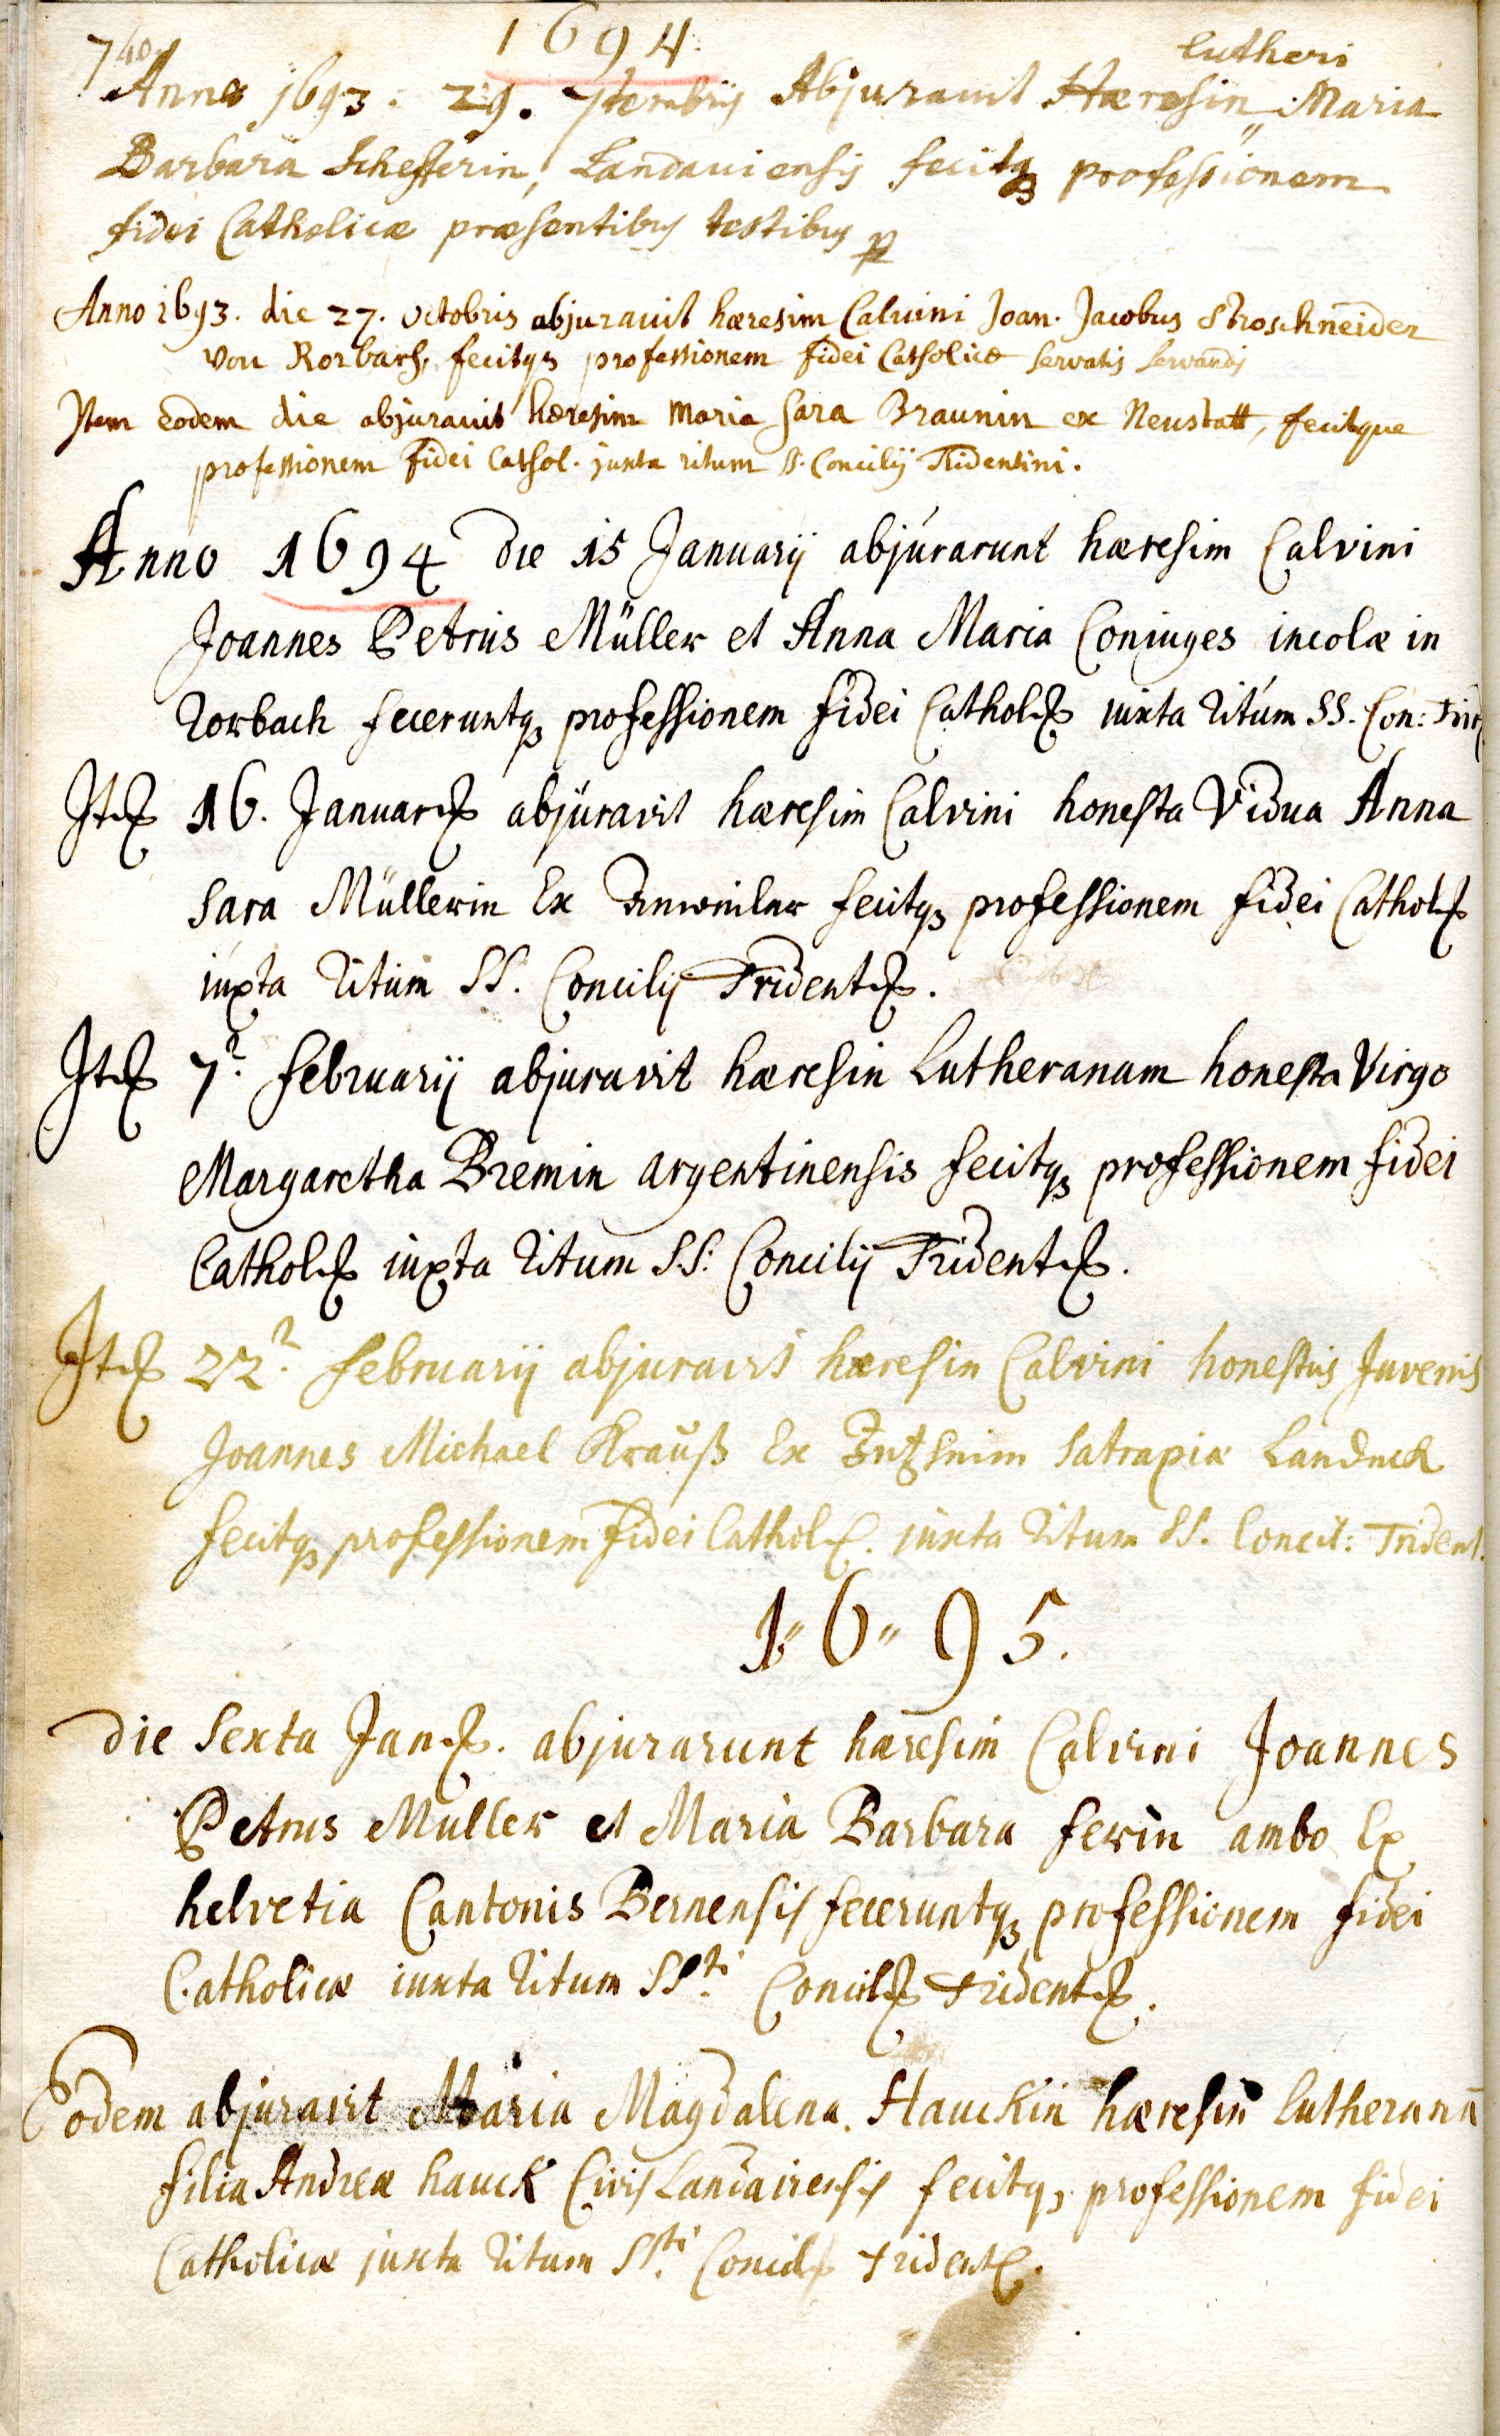 1694.
740.
lutheri
Anno 1693. 29. 7tembrij Abjurauit Hæresin Maria
Barbara Schefferin, Landauiensis fecitq professionem
fidei Catholicæ præsentibus testibus
Anno 1693. die 27. octobris abjurauit hæresim Caluini Joan. Jacobus Stroschneider
von Rorbach, fecitqs professionem fidei Catholicæ servatis servandis
Item eodem die abjurauit hæresim Maria Sara Braunin ex Neustatt, fecitque
professionem fidei Cathol. juxta ritum SS. Concilij Tridentini.
Anno 1694 die 15 Januarij abjurarunt hæresim Calvini
Joannes Petrus Müller et Anna Maria Coniuges incolæ in
Rorbach feceruntq professionem fidei Cathol. iuxta Ritum SS. Con: Trid
It. 16. Januar. abjuravit hæresim Calvini honesta Vidua Anna
Sara Müllerin Ex Anweiler fecitq professionem fidei Cathol.
iuxta Ritum SS. Concilij Trident.
It. 7? february abjuravit hæresin Lutheranam honesta Virgo
Margaretha Bremin argentinensis fecitq professionem fidei
Cathol. iuxta Ritum SS. Concilij Trident.
It. 22? february abjuravit hæresin Calvini honestus Juvenis
Joannes Michael Krauß Ex Satrapiæ Landeck
fecitq professionem fidei Cathol. iuxta Ritum SS. Concil: Trident.
1"6"95.
Die Sexta Jan. abjurarunt hæresim Calvini Joannes
Petrus Muller et Maria Barbara ferin ambo Ex
helvetia Cantonis Bernensis feceruntq professionem fidei
Catholicæ iuxta Ritum SSti Concil. Trident.
Eodem abjuravit Maria Magdalena Hauckin hæresin lutheranā
filia Andreæ hauck Civis Landaviensis fecitq professionem fidei
Catholicæ juxta Ritum Sti Concil. Trident.